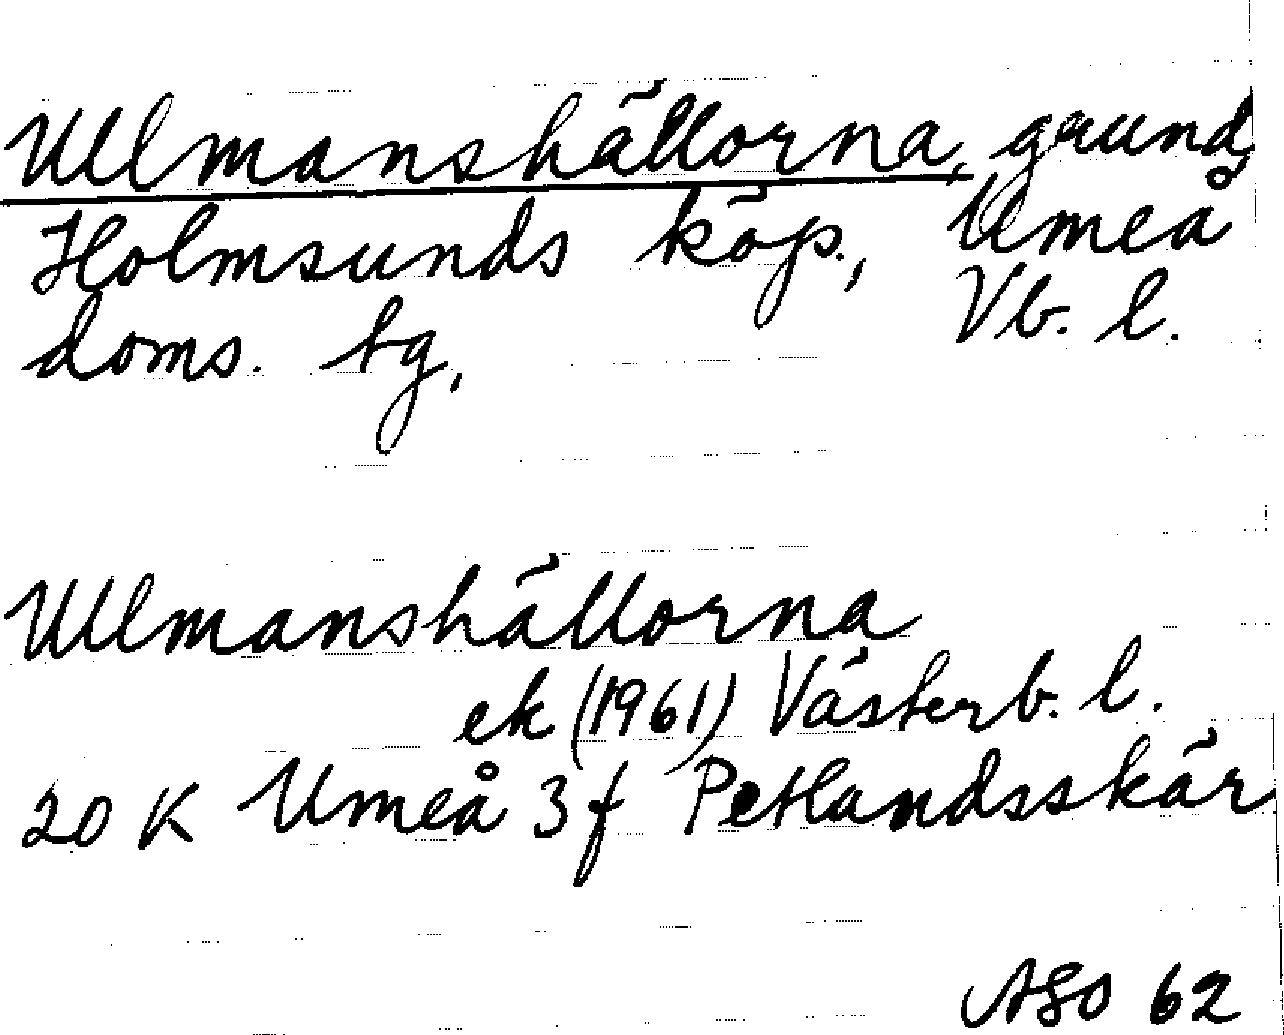 Ullmanshällorna, grund,
Holmsunds köp., Umeå
doms. tg, Vb. l.
Ullmanshällorna
ek (1961) Västerb. l.
20 K Umeå 3 f Petlandsskär
ASO 62